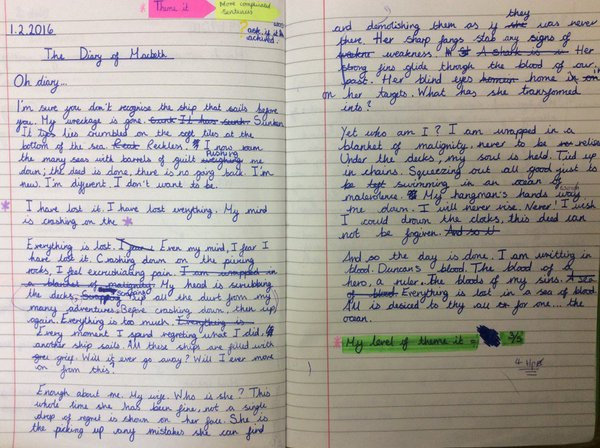 Theme it
More complicated sentences
1.2.2016
ask if it
achieved.
The Diary of Macbeth
Oh diary...
I'm sure you don't recognise the ship that sails before
you. My wreckage is gone. Sunk. It has sunk. Sunken.
It lies crumbled on the soft tiles at the
bottom of the sea. Reckless! I now roam
the many seas with barrels of guilt weighing pushing me
down; the deed is done, there is no going back. I'm
new. I'm different. I don't want to be.
* I have lost it. I have lost everything. My mind
is crashing on the *
Everything is lost. I fear. Even my mind, I fear I
have lost it. Crashing down on the piercing
rocks, I feel excruciating pain. I am wrapped in
a blanket of malignity. My head is scrubbing
the decks, scraping up all the dirt from my
many adventures. Before crashing down, then up
again. Everything is too much. Everything is
Every moment I spend regreting what I did,
another ship sails. All these ships are filled with
grief. Will it ever go away? Will I ever move
on from this?
Enough about me. My wife. Who is she? This
whole time she has been fine, not a single
drop of regret is shown on her face. She is
the picking up any mistakes she can find
and demolishing them as if they she was never
there. Her sharp fangs stab any signs of
weakness. A shark is in Her
strong fins glide through the blood of our
past. Her blind eyes home in
on her targets. What has she transformed
into?
Yet who am I? I am wrapped in a
blanket of malignity, never to be relise.
Under the decks, my soul is held. Tied up
in chains. Squeezing out all good just to
be left swimming in an ocean of
malevolence. My hangman's hands weigh
me down. I will never rise. Never! I wish
I could down the clocks, this deed can
not be forgiven. And so U
And so the day is done. I am writting in
blood. Duncan's blood. The blood of a
hero, a ruler, the bloods of my sins. A sea
of blood. Everything is lost in a sea of blood.
All is desired to thy all to for one... the
ocean.
* My level of theme it = 3/5